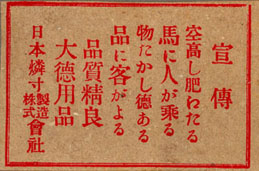 宣傳
空高し肥わたる
馬に人が乘る
物たかし德ある
品に客がよる
品質精良
大德用品
日本燐寸製造株式會社